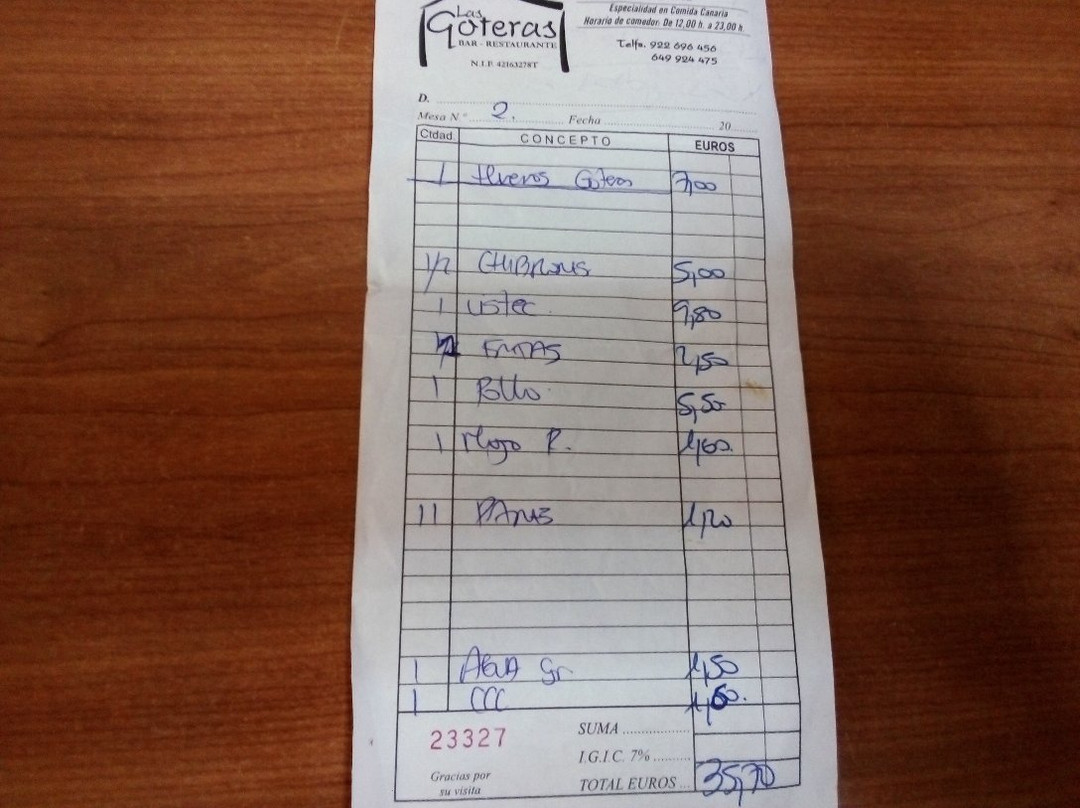 Las
Goteras
BAR - RESTAURANTE
N.I.F. 42163278T
Especialidad en Comida Canaria
Horario de comedor: De 12,00 h. a 23,00 h.
Telfs. 922 696 456
649 924 475
D.
Mesa Nº 2. Fecha 20
Ctdad. CONCEPTO EUROS
1 Huevos Goteras 7,00
1/2 5,00
1 9,80
2,50
1 Pollo 5,50
1 Mojo P. 1,60
11 PANES 1,20
1 AGUA Gr 1,50
1 CCC 1,60
23327
SUMA
I.G.I.C. 7%
Gracias por
su visita
TOTAL EUROS 35,70